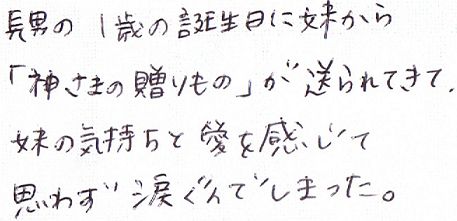 長男の1歳の誕生日に妹から
「神さまの贈りもの」が送られてきて、
妹の気持ちと愛を感じて
思わず涙ぐんでしまった。